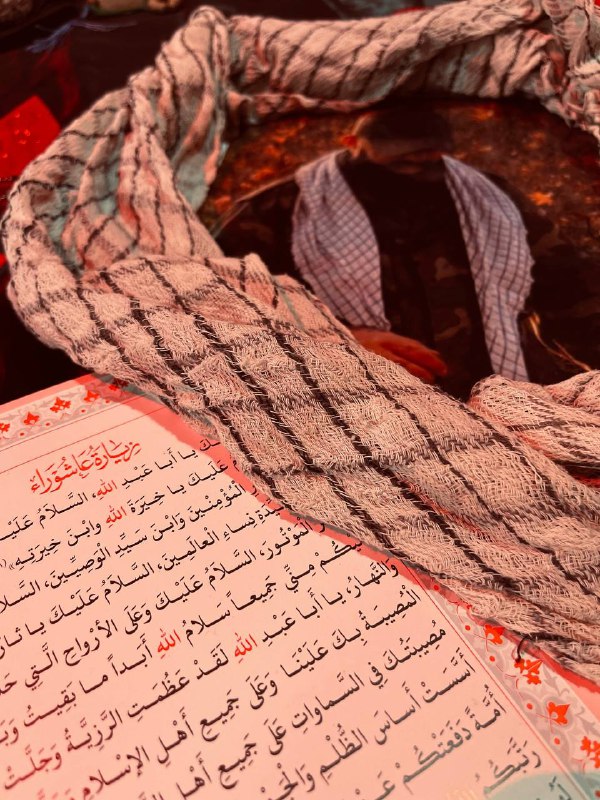 زِيَارَةُ عَاشُورَاء
يا أَبا عَبْدِ اللهِ، السَّلامُ عَلَيْـ
عَلَيْكَ يا خِيَرَةَ اللهِ وابْنَ خِيَرَتِهِ،
الْمُؤْمِنِينَ وَابْنَ سَيِّدِ الْوَصِيِّينَ، السَّلا
ـدَةِ نِساءِ الْعالَمِينَ، السَّلامُ عَلَيْكَ يا ثارَ
الْمَوْتُورَ، السَّلامُ عَلَيْكَ وَعَلَى الأَرْواحِ الَّتِي حَـ
ـيْكُمْ مِنِّي جَمِيعاً سَلامُ اللهِ أَبَداً ما بَقِيتُ وَبَـ
وَالنَّهارُ، يا أَبا عَبْدِ اللهِ لَقَدْ عَظُمَتِ الرَّزِيَّةُ وَجَلَّتْ
الْمُصِيبَةُ بِكَ عَلَيْنا وَعَلَى جَمِيعِ أَهْلِ الإِسْلامِ
مُصِيبَتُكَ فِي السَّماواتِ عَلَى جَمِيعِ أَهْلِ
أَسَّسَتْ أَساسَ الظُّلْمِ وَالْجَـ
أُمَّةً دَفَعَتْكُمْ عَـ
رَتَّبَكُمُ